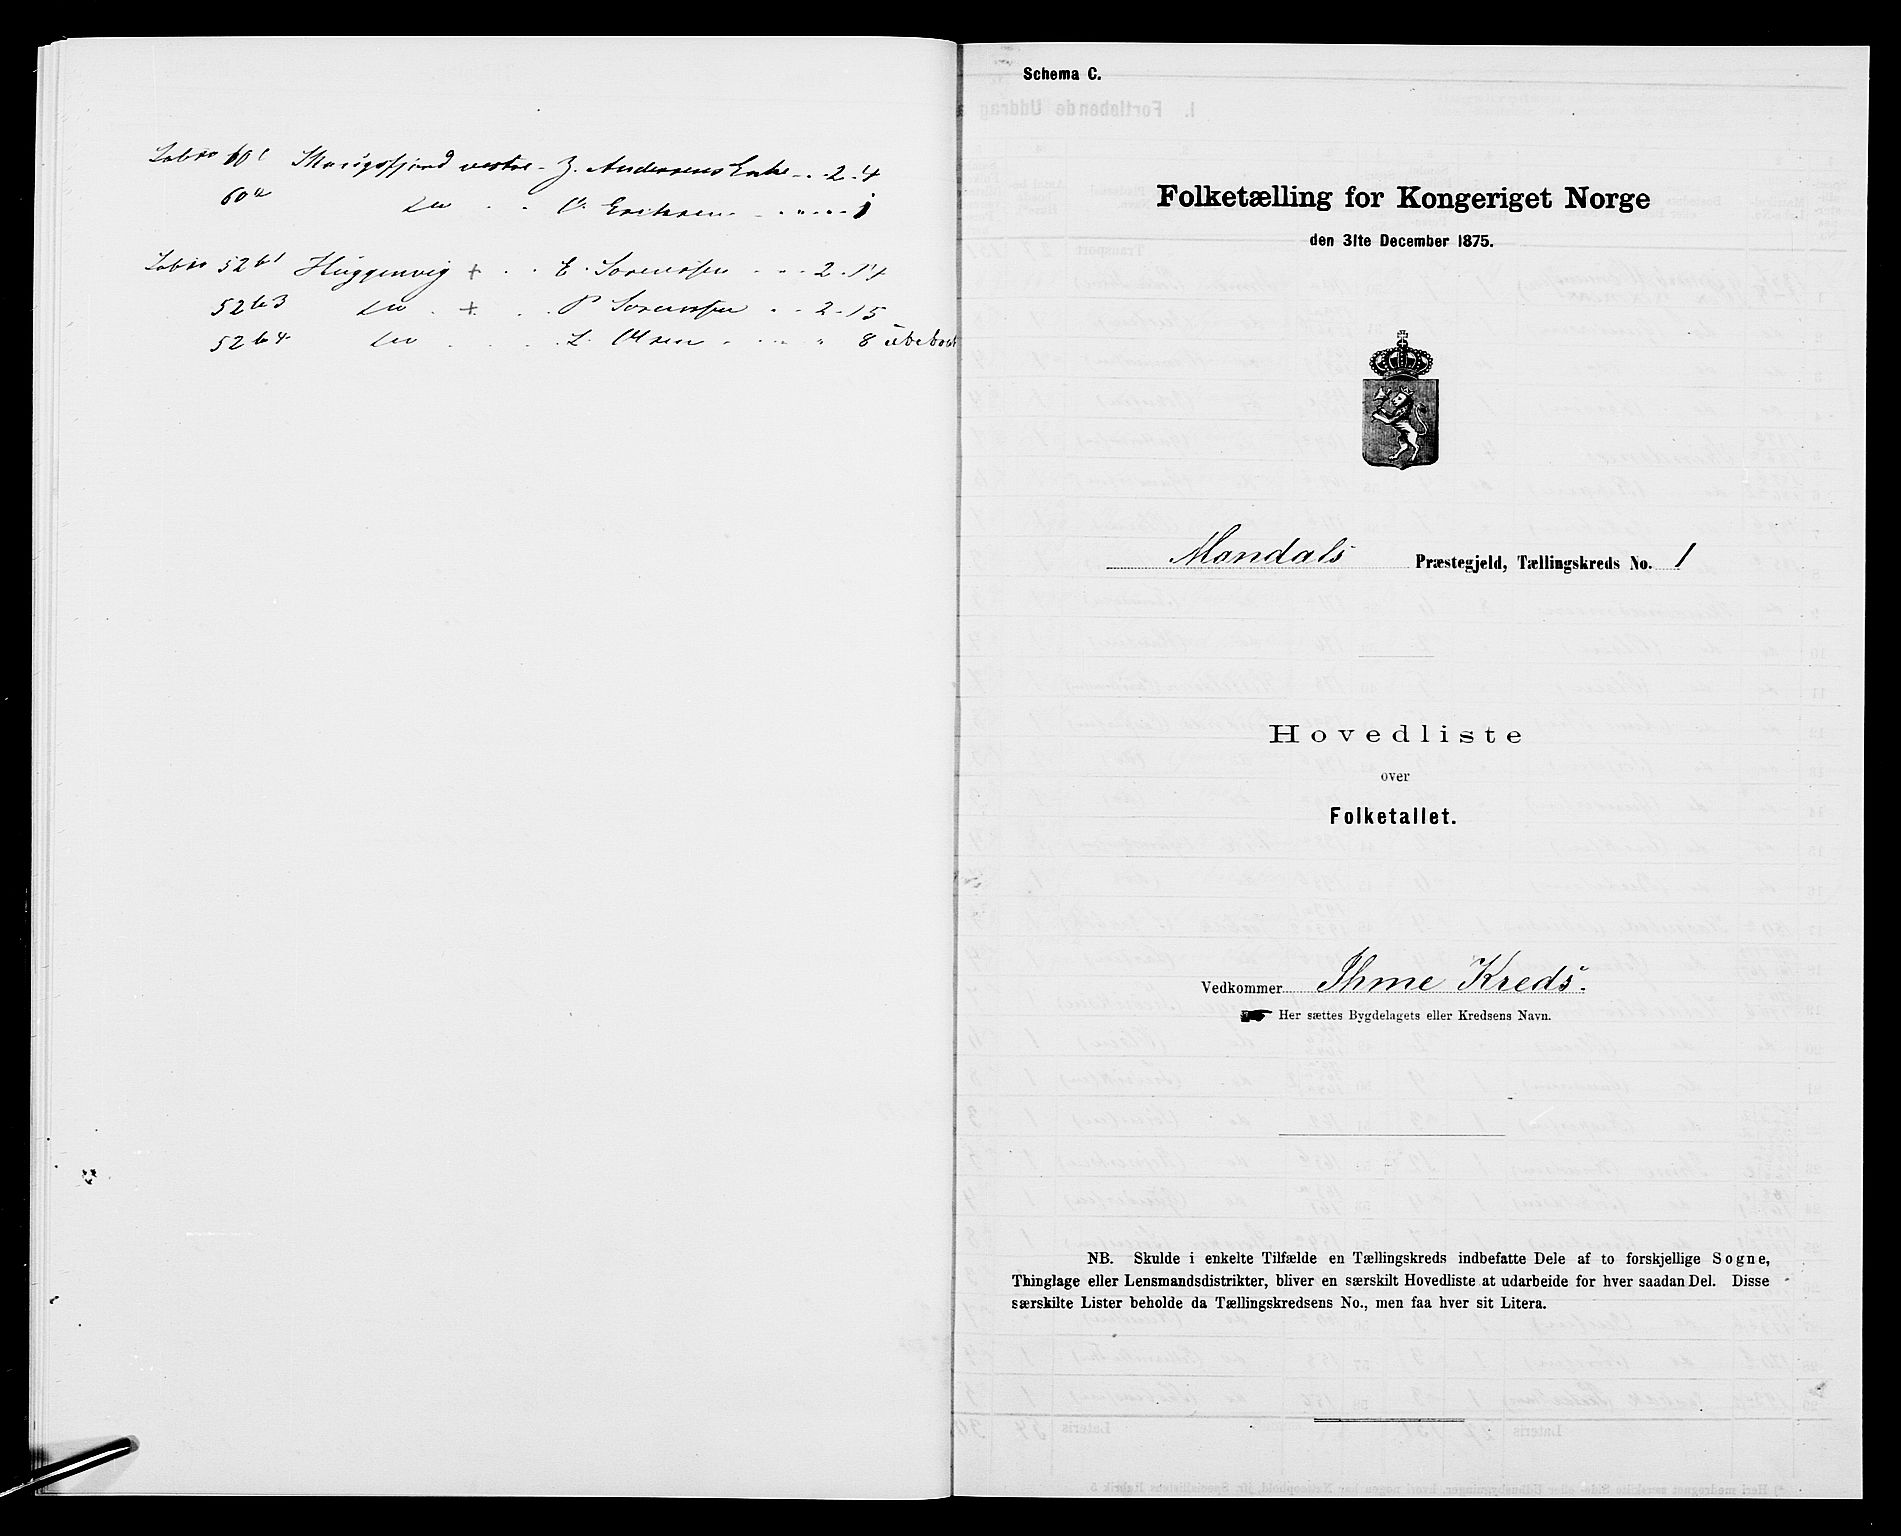 Løbno 60 c Skougsfjord vestre - Z. Andersens Enke - . . 2 . 4
60 a do . . O. Eriksen . . . . . . 1
Løbno 52 b 1 Huggenvig + . . E. Sørenssen . . . 2 . 14
52 b 3 do . + . . P Sørenssen . . 2 . 15
52 b 4 do . . . . L. Olsen . . . . 8 ubeboet
Schema C.
Folketælling for Kongeriget Norge
den 31te December 1875.
Mandals Præstegjeld, Tællingskreds No. 1
Hovedliste
over
Folketallet.
Vedkommer Ihme Kreds.
Her sættes Bygdelagets eller Kredsens Navn.
NB. Skulde i enkelte Tilfælde en Tællingskreds indbefatte Dele af to forskjellige Sogne,
Thinglage eller Lensmandsdistrikter, bliver en særskilt Hovedliste at udarbeide for hver saadan Del. Disse
særskilte Lister beholde da Tællingskredsens No., men faa hver sit Litera.